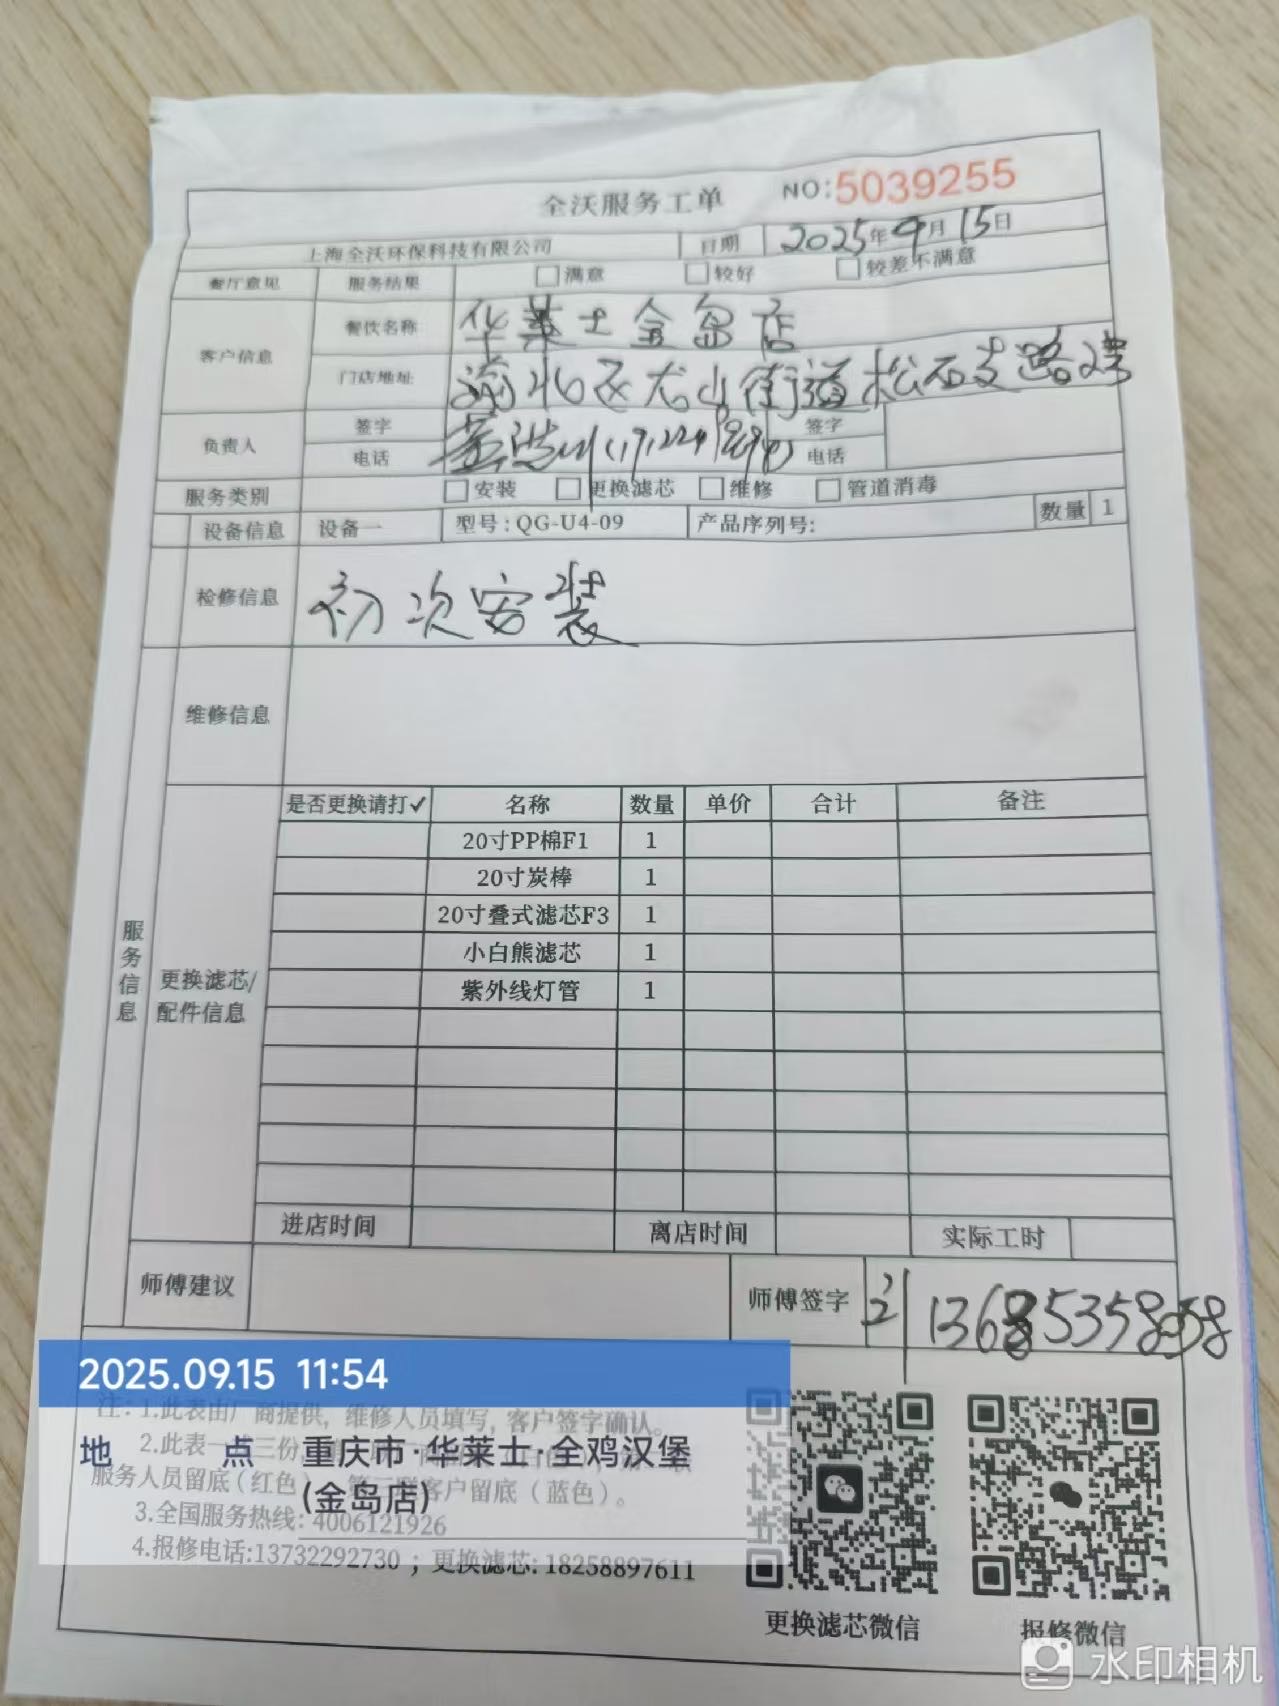 全沃服务工单 NO:5039255
上海全沃环保科技有限公司 日期 2025年9月15日
餐厅意见 服务结果 满意 较好 较差不满意
客户信息 餐饮名称 华莱士金岛店
门店地址 渝北区龙山街道松石支路2号
负责人 签字 签字
电话 电话
服务类别 安装 更换滤芯 维修 管道消毒
设备信息 设备一 型号:QG-U4-09 产品序列号: 数量 1
检修信息 初次安装
维修信息
服务信息
更换滤芯/配件信息
是否更换请打✓ 名称 数量 单价 合计 备注
20寸PP棉F1 1
20寸炭棒 1
20寸叠式滤芯F3 1
小白熊滤芯 1
紫外线灯管 1
进店时间 离店时间 实际工时
师傅建议 师傅签字
2025.09.15 11:54
地 点 重庆市·华莱士·全鸡汉堡
(金岛店)
注:1.此表由厂商提供，维修人员填写，客户签字确认。
2.此表一
三份
服务人员留底(红色)
客户留底(蓝色)。
3.全国服务热线:4006121926
4.报修电话:13732292730；更换滤芯:18258897611
更换滤芯微信 报修微信
水印相机